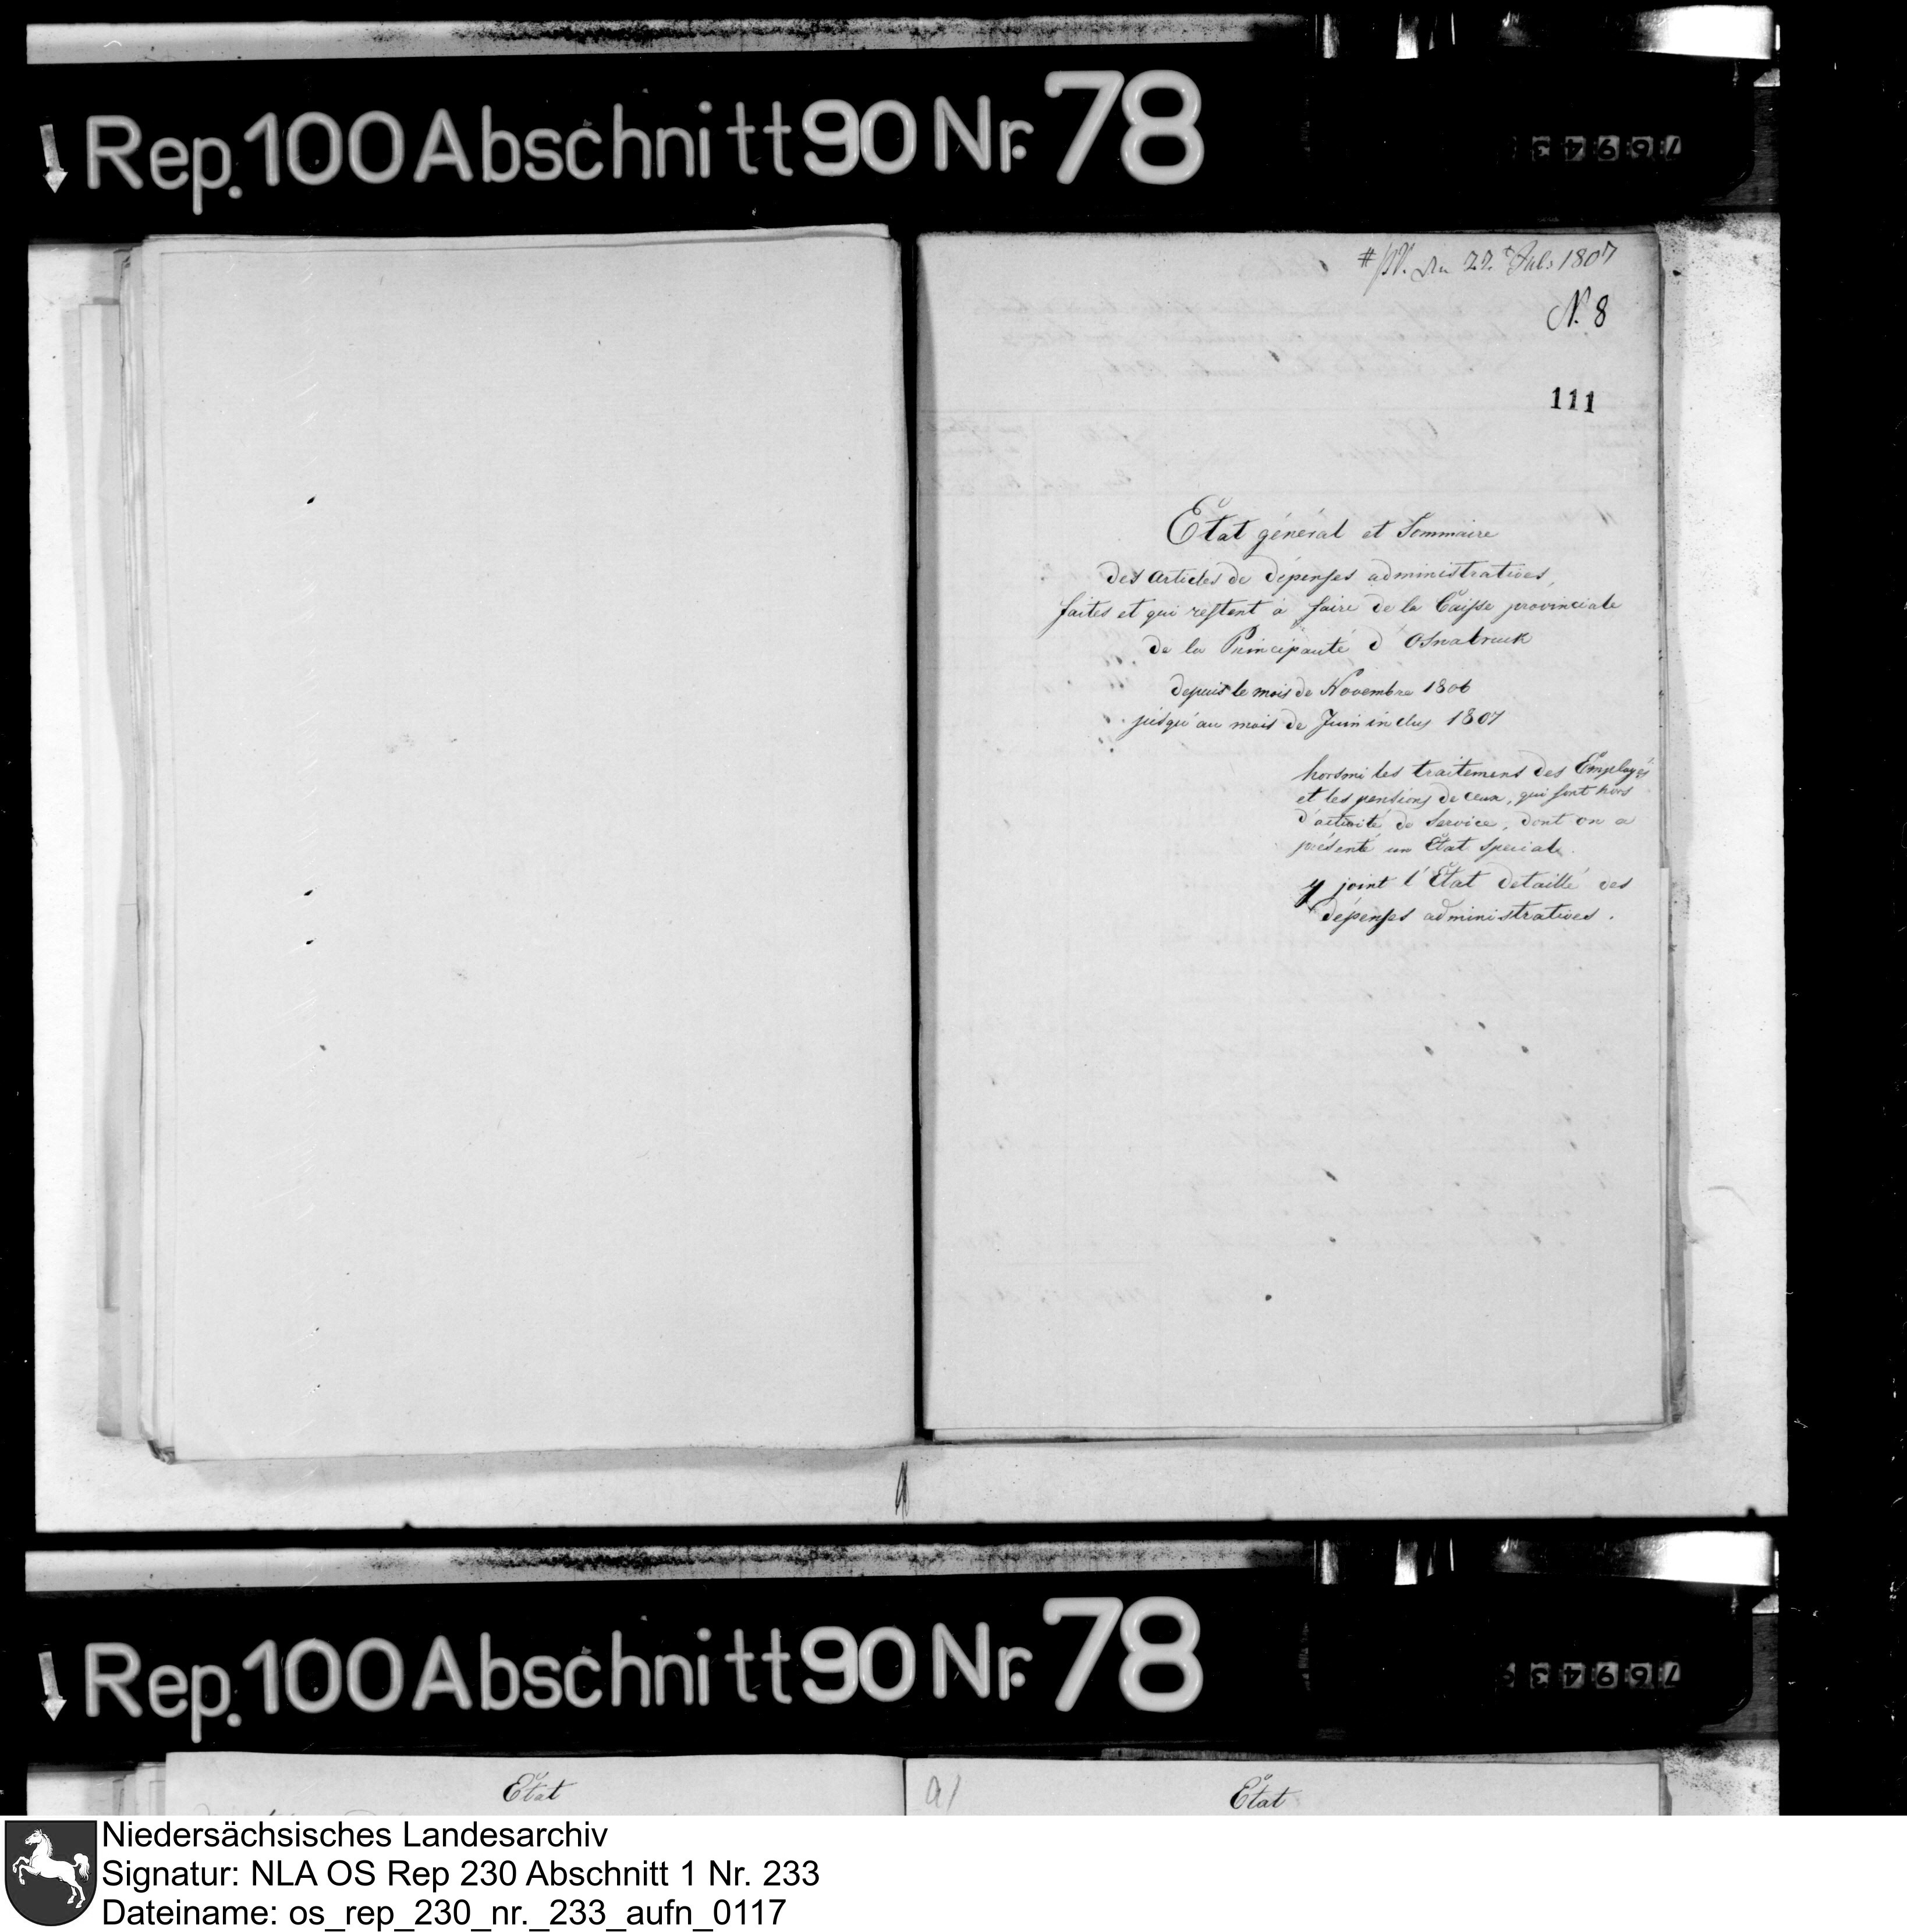 Rep. 100 Abschnitt 90 Nr. 78
76943
den 22. Jul: 1807
N. 8
111
Etat général et Sommaire
des articles de dépenses administratives,
faites et qui restent à faire de la Caisse provinciale
de la Principauté d'Osnabruck
depuis le mois de Novembre 1806
jusqu'au mois de Juin inclus 1807
horsmi les traitemens des Employés
et les pensions de ceux, qui sont hors
d'activité de Service, dont on a
présenté un Etat special.
y joint l'Etat detaillé des
dépenses administratives.
Rep. 100 Abschnitt 90 Nr. 78
76943
Etat
a/
Etat
Niedersächsisches Landesarchiv
Signatur: NLA OS Rep 230 Abschnitt 1 Nr. 233
Dateiname: os_rep_230_nr._233_aufn_0117